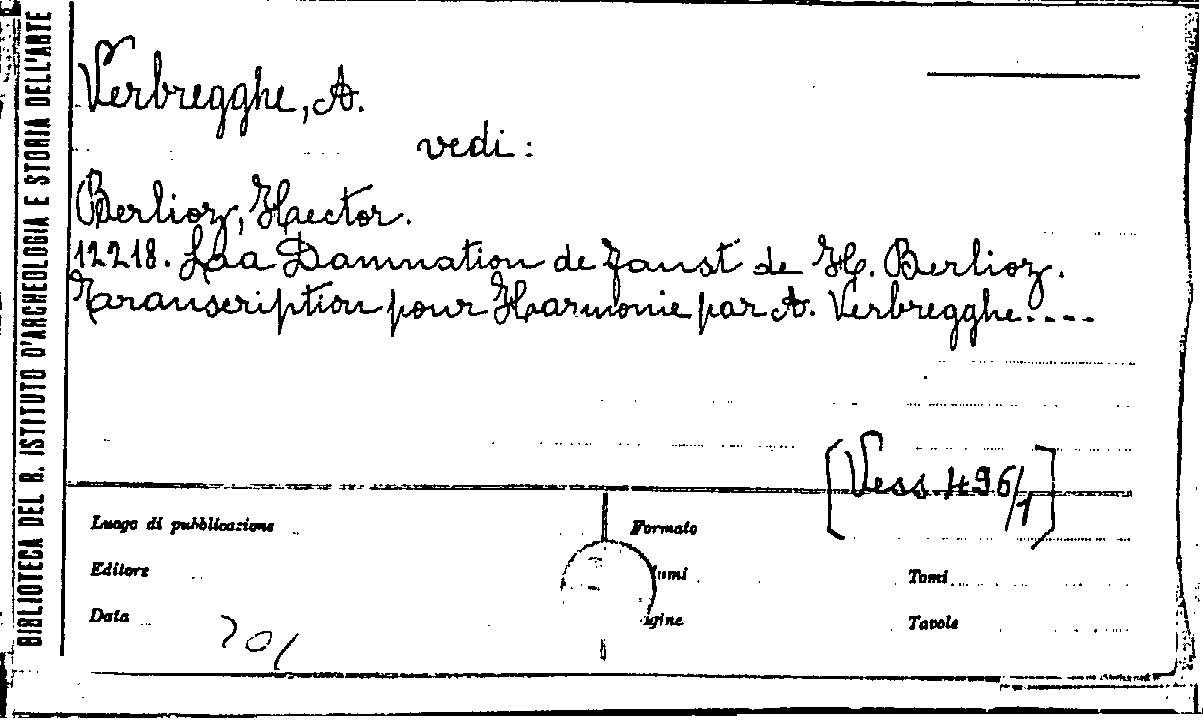 BIBLIOTECA DEL R. ISTITUTO D'ARCHEOLOGIA E STORIA DELL'ARTE
Verbregghe, A.
vedi:
Berlioz, Hector.
12218. Laa Damnation de Faust de H. Berlioz.
Taranscription pour Harmonie par A. Verbregghe....
[Vess. 496/1]
Luogo di pubblicazione
Formato
Editore
lumi
Tomi
Data
agine
Tavole
201